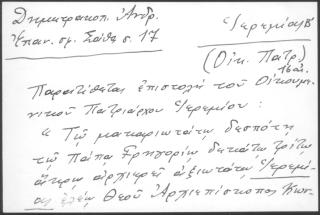 Δημητρακοπ. Ἀνδρ.
Ἱερεμίας Β΄
Ἐπαν. σμ. Σάθα σ. 17
(Οἰκ. Πατρ.)
16 αἰ.
Παρατίθεται ἐπιστολὴ τοῦ Οἰκουμε-
νικοῦ Πατριάρχου Ἱερεμίου :
" Τῷ μακαριωτάτῳ δεσπότῃ
τῷ Πάπᾳ Γρηγορίῳ δεκάτῳ τρίτῳ
ἄκρῳ ἀρχιερεῖ ἀξιωτάτῳ Ἱερεμί-
ας ἐλέῳ Θεοῦ Ἀρχιεπίσκοπος Κων-